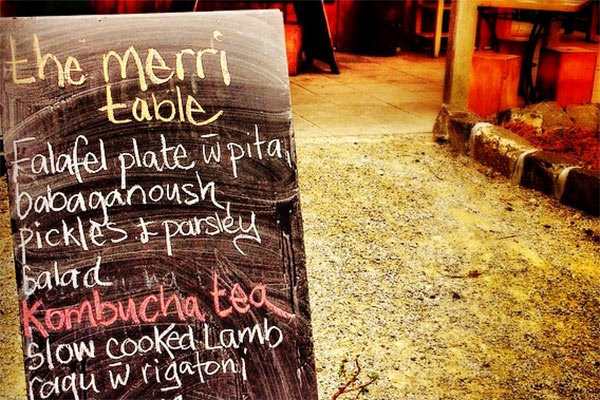 the merri
table
Falafel plate w̄ pita,
babaganoush,
pickles & parsley
salad
Kombucha tea
slow cooked Lamb
ragu w̄ rigatoni